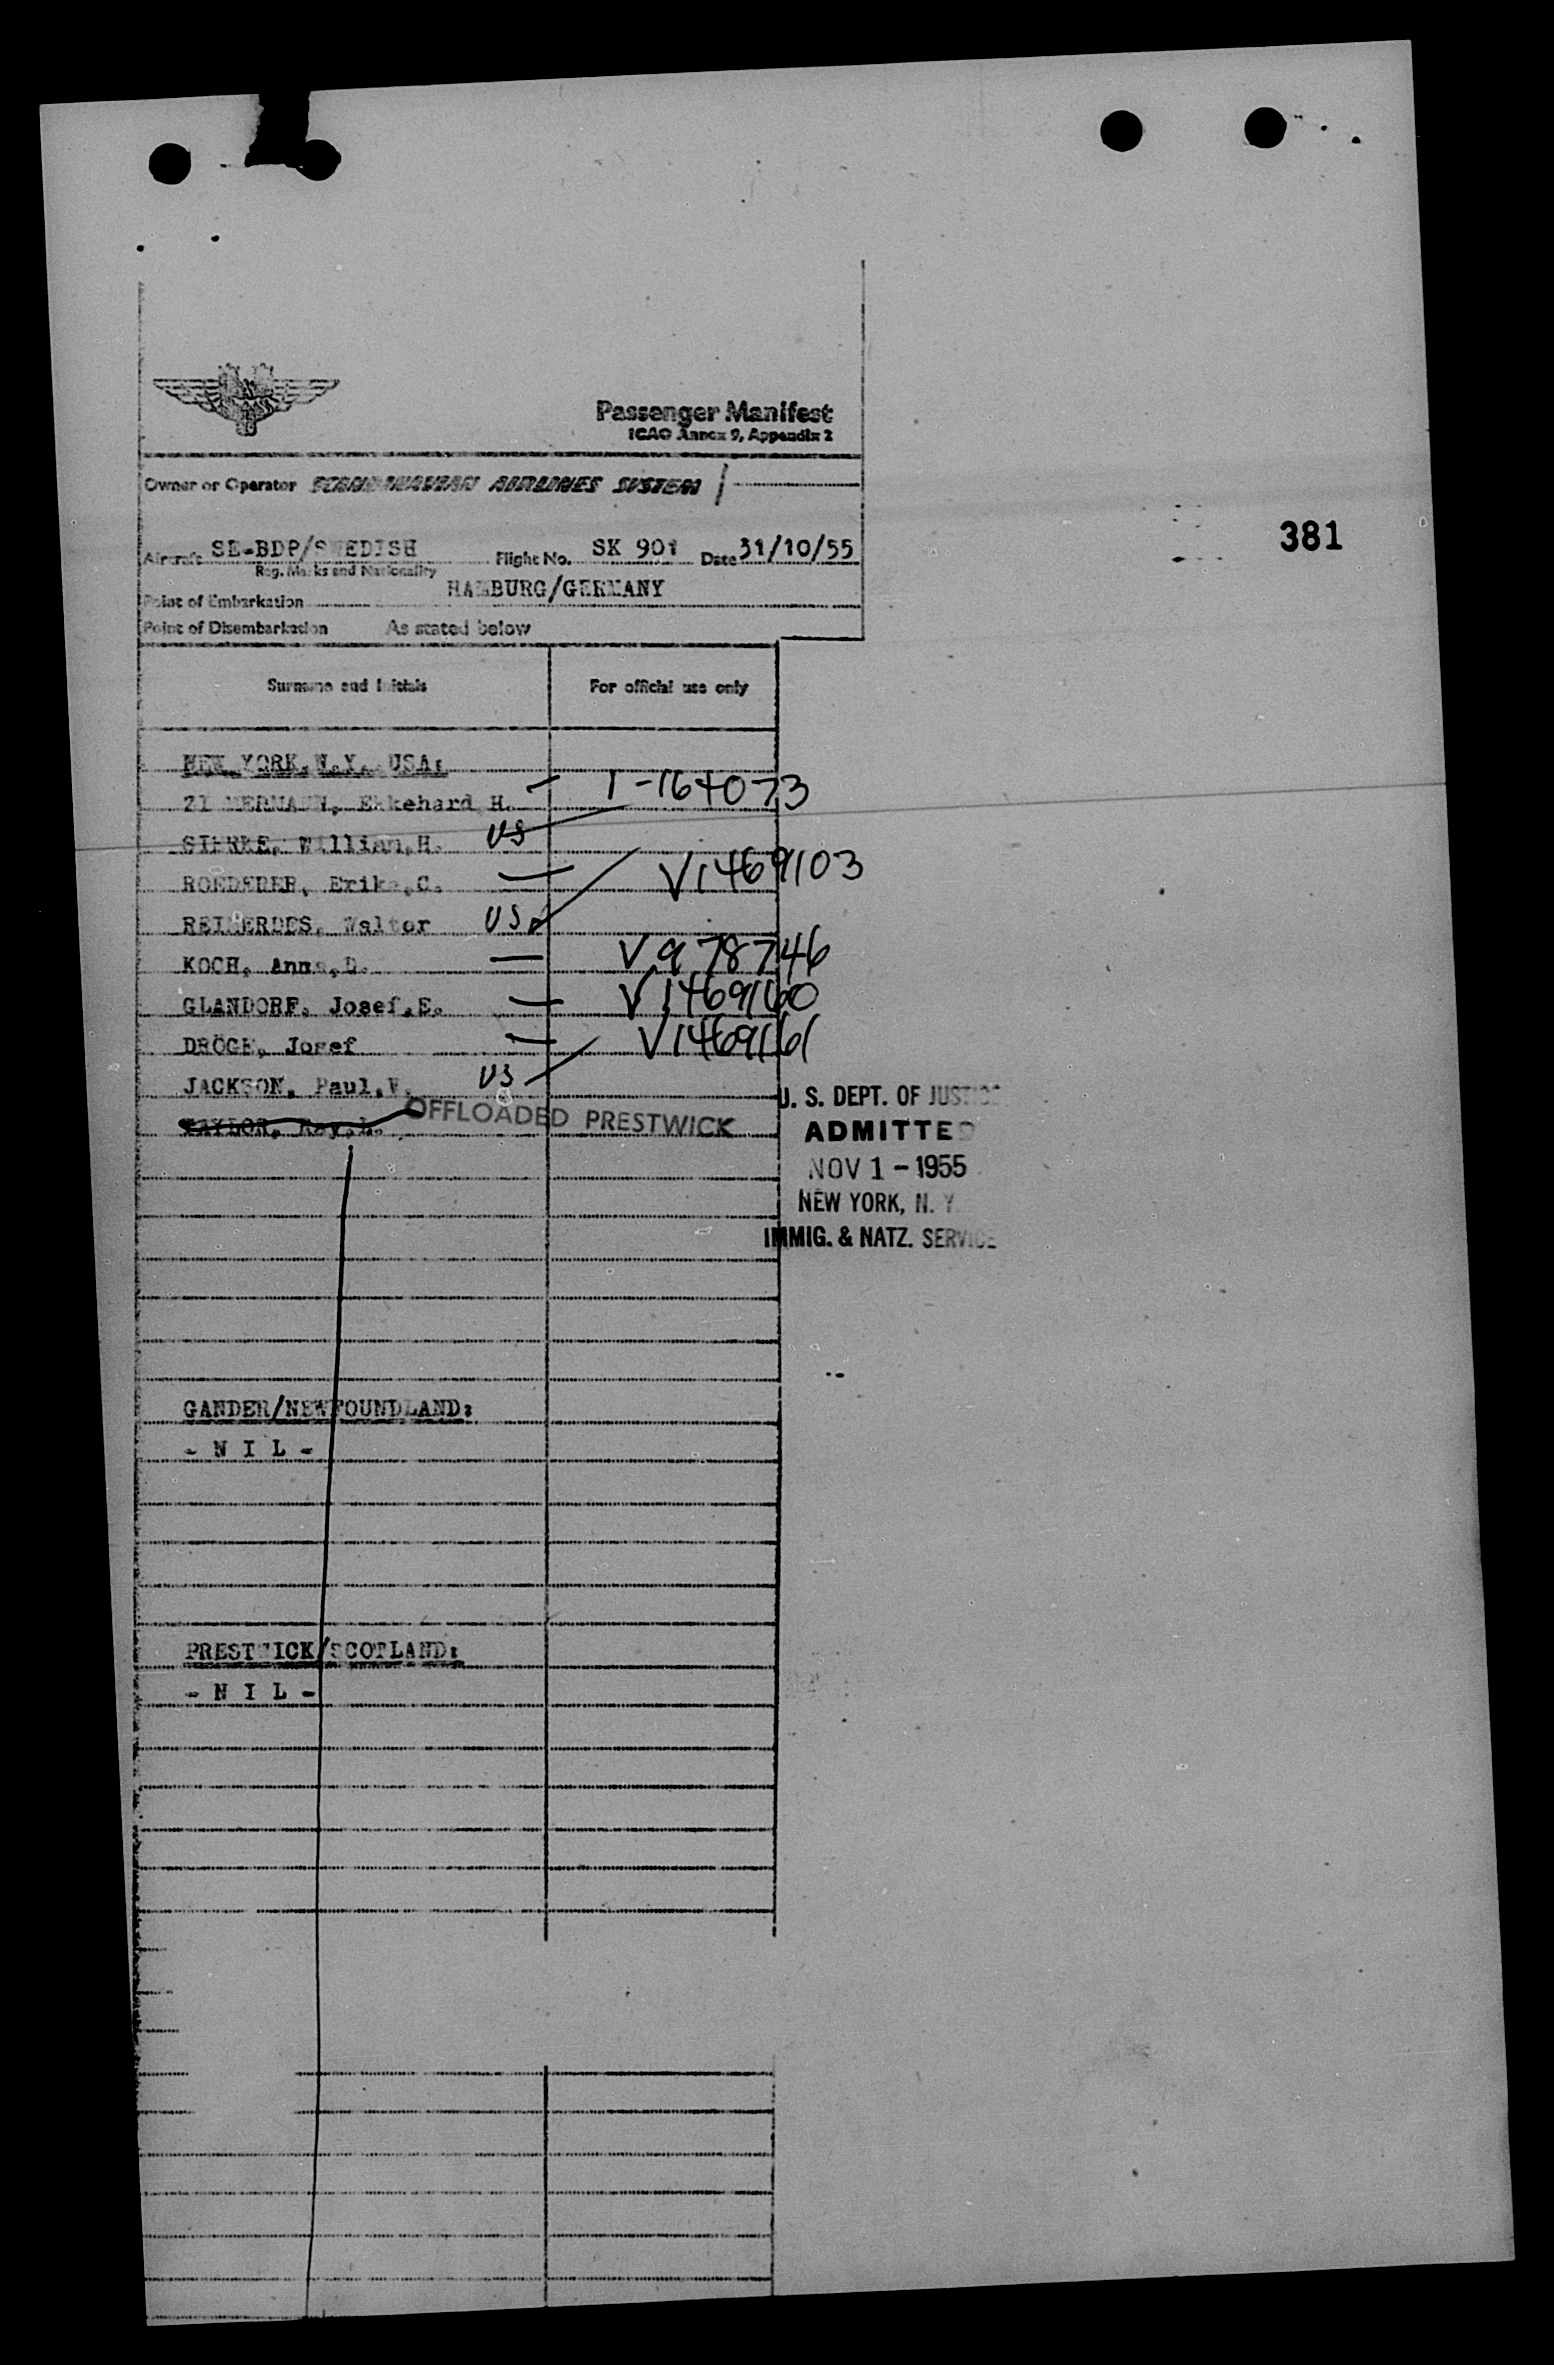 Passenger Manifest
ICAO Annex 9, Appendix 2
Owner or Operator SCANDINAVIAN AIRLINES SYSTEM
Aircraft SE-BDP/SWEDISH Flight No. SK 901 Date 31/10/55
Reg. Marks and Nationality
381
Point of Embarkation HAMBURG/GERMANY
Point of Disembarkation As stated below
Surname and Initials For official use only
NEW YORK, N.Y. USA:
ZIMMERMANN, Ekkehard H. 1-164073
SIERKE, William,H. US
ROEDERER, Erika,C. V1469103
REIMERDES, Walter US
KOCH, Anna,D. V978746
GLANDORF, Josef,E. V1469160
DRÖGE, Josef V1469161
JACKSON, Paul,V. US
TAYLOR, Roy,L. OFFLOADED PRESTWICK
U. S. DEPT. OF JUSTICE
ADMITTED
NOV 1 - 1955
NEW YORK, N. Y.
IMMIG. & NATZ. SERVICE
GANDER/NEWFOUNDLAND:
- N I L -
PRESTWICK/SCOTLAND:
- N I L -